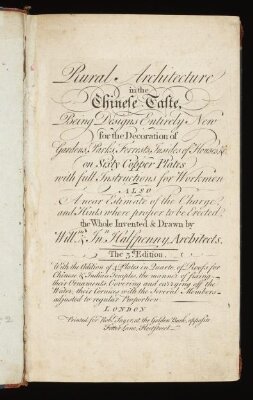 Rural Architecture
in the
Chinese Taste,
Being Designs Entirely New
for the Decoration of
Gardens, Parks, Forrests, Insides of Houses, &c.
on Sixty Copper Plates
with full Instructions for Workmen
ALSO
A near Estimate of the Charge,
and Hints where proper to be Erected.
the Whole Invented & Drawn by
Willm. & Jno. Halfpenny, Architects.
The 3d. Edition.
With the Adition of 4 Plates in Quarto, of Roofs for
Chinese & Indian Temples, the manner of fixing
their Ornaments, Covering and carrying off the
Water, their Cornices with the several Members
adjusted to regular Proportion.
LONDON
Printed for Robt. Sayer, at the Golden Buck, opposite
Fetter Lane, Fleetstreet.